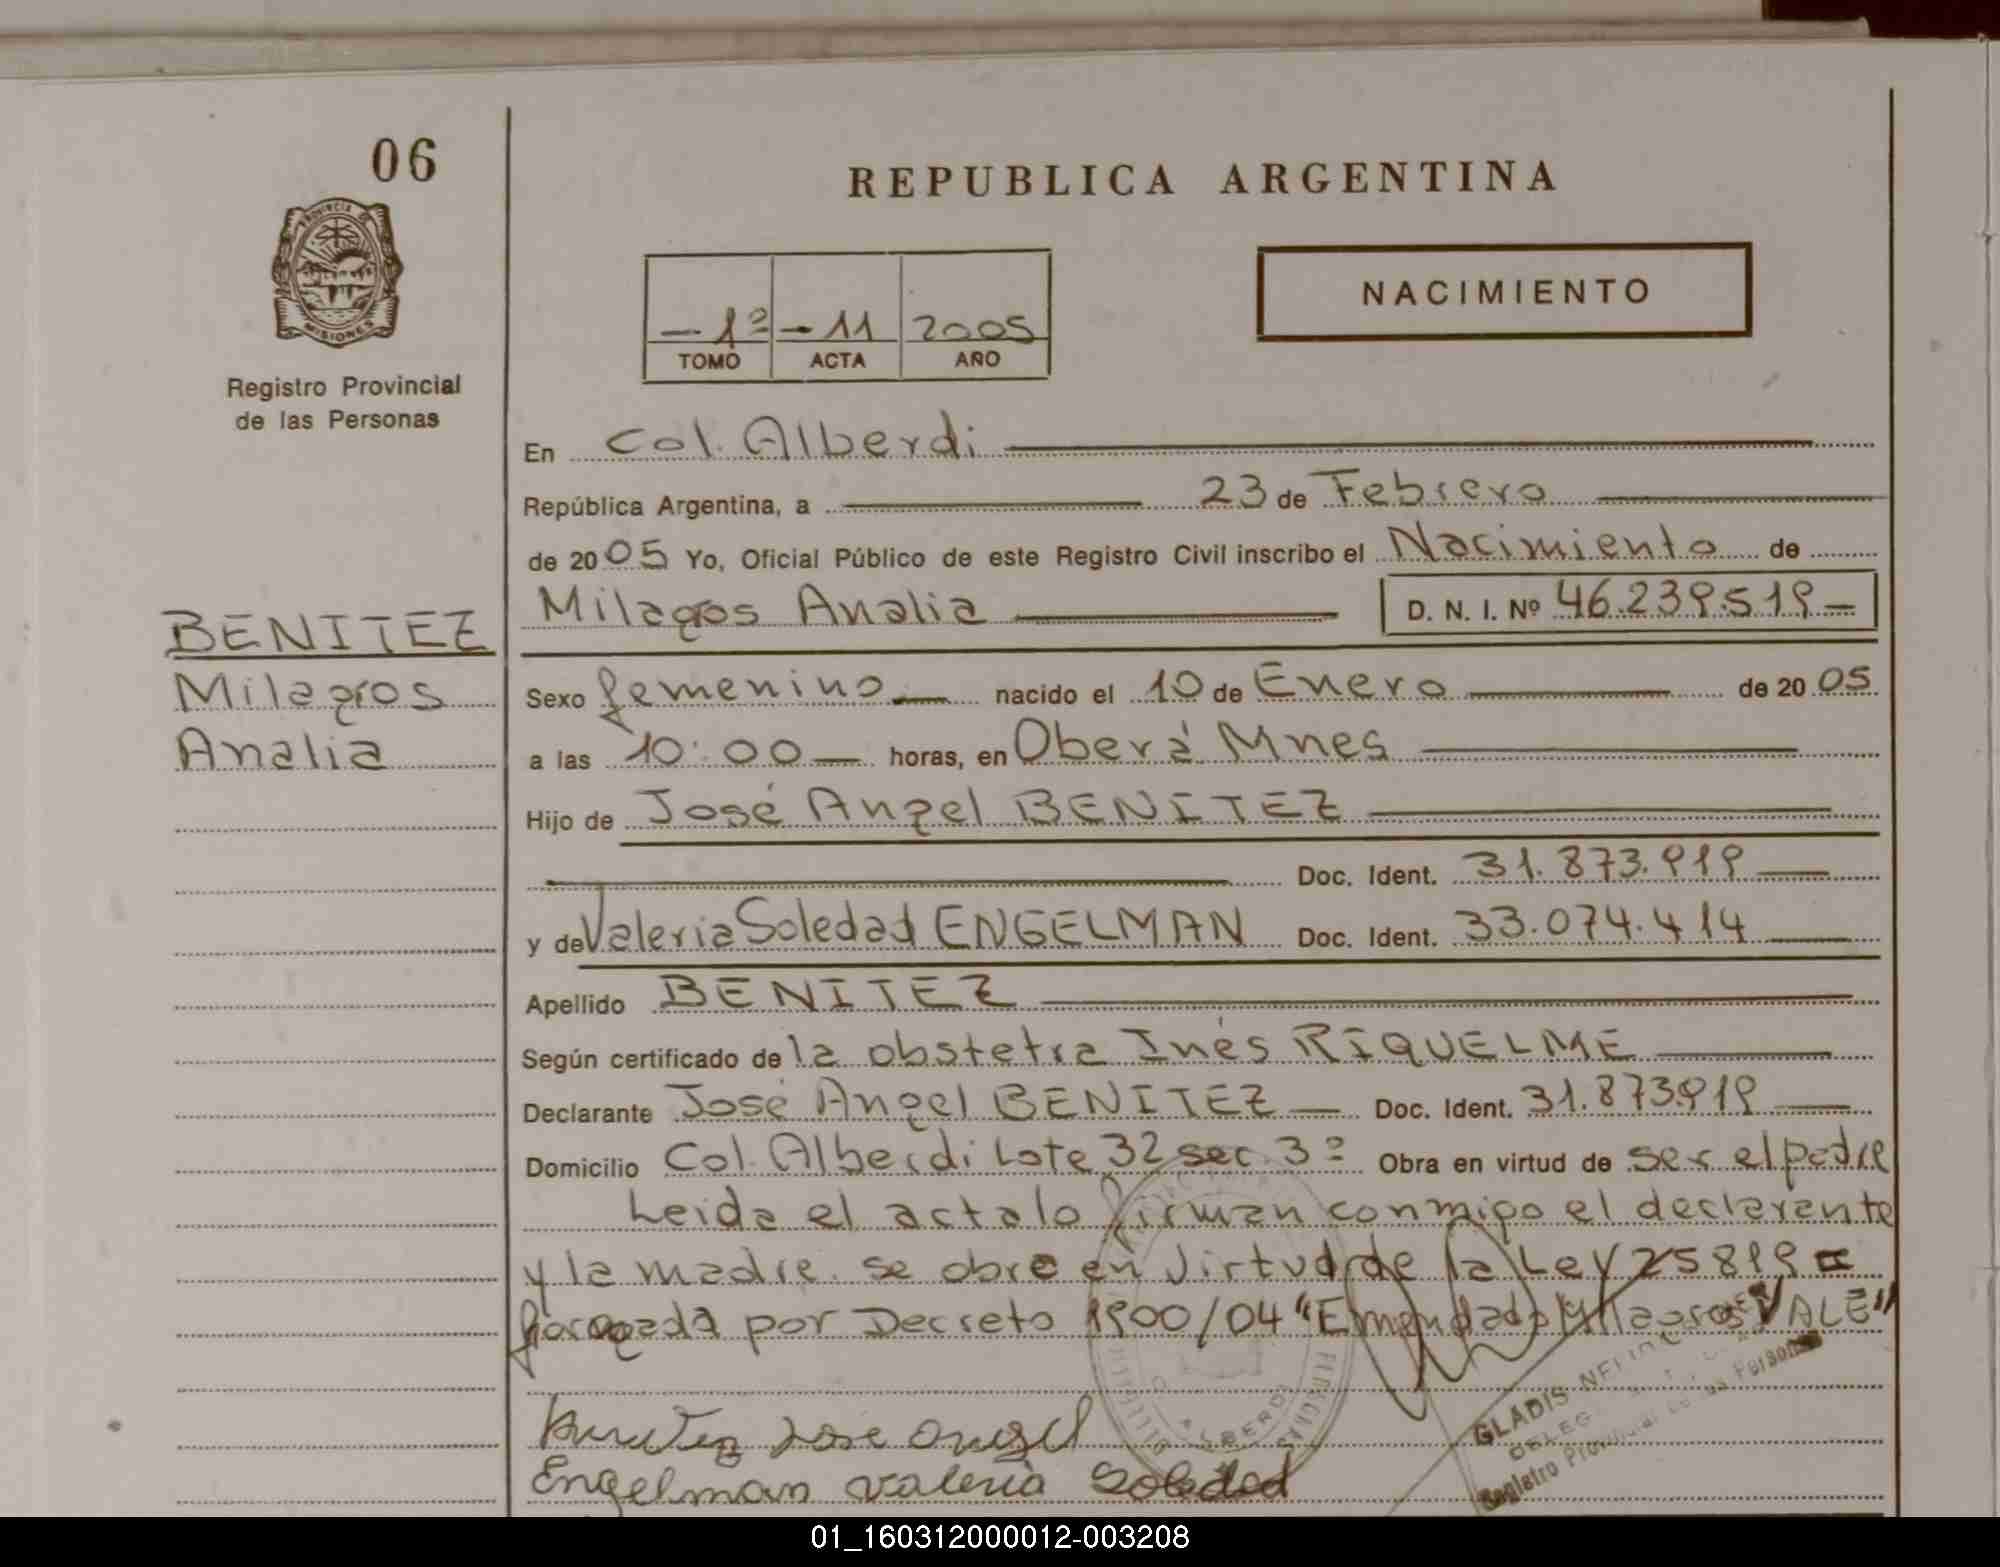 06
REPUBLICA ARGENTINA
PROVINCIA DE
MISIONES
Registro Provincial
de las Personas
NACIMIENTO
— 1º — 11 2005
TOMO ACTA AÑO
En Col. Alberdi
República Argentina, a 23 de Febrero
de 2005 Yo, Oficial Público de este Registro Civil inscribo el Nacimiento de
Milagros Analia D. N. I. Nº 46.239.519 —
BENITEZ
Milagros
Analia
Sexo femenino — nacido el 10 de Enero de 2005
a las 10:00 — horas, en Oberá Mnes
Hijo de José Angel BENITEZ
Doc. Ident. 31.873.919
y de Valeria Soledad ENGELMAN Doc. Ident. 33.074.414
Apellido BENITEZ
Según certificado de la obstetra Inés RIQUELME
Declarante José Angel BENITEZ — Doc. Ident. 31.873919
Domicilio Col. Alberdi Lote 32 sec. 3º Obra en virtud de ser el padre
Leida el acta lo firman conmigo el declarante
y la madre. se obre en virtud de la Ley 25819
por Decreto 1900/04 "Emendado Milagros VALE"
GLADIS
DELEG
Registro Provincial de las Personas
ALBERDI
Benitez Jose Angel
Engelman Valeria Soledad
01_160312000012-003208